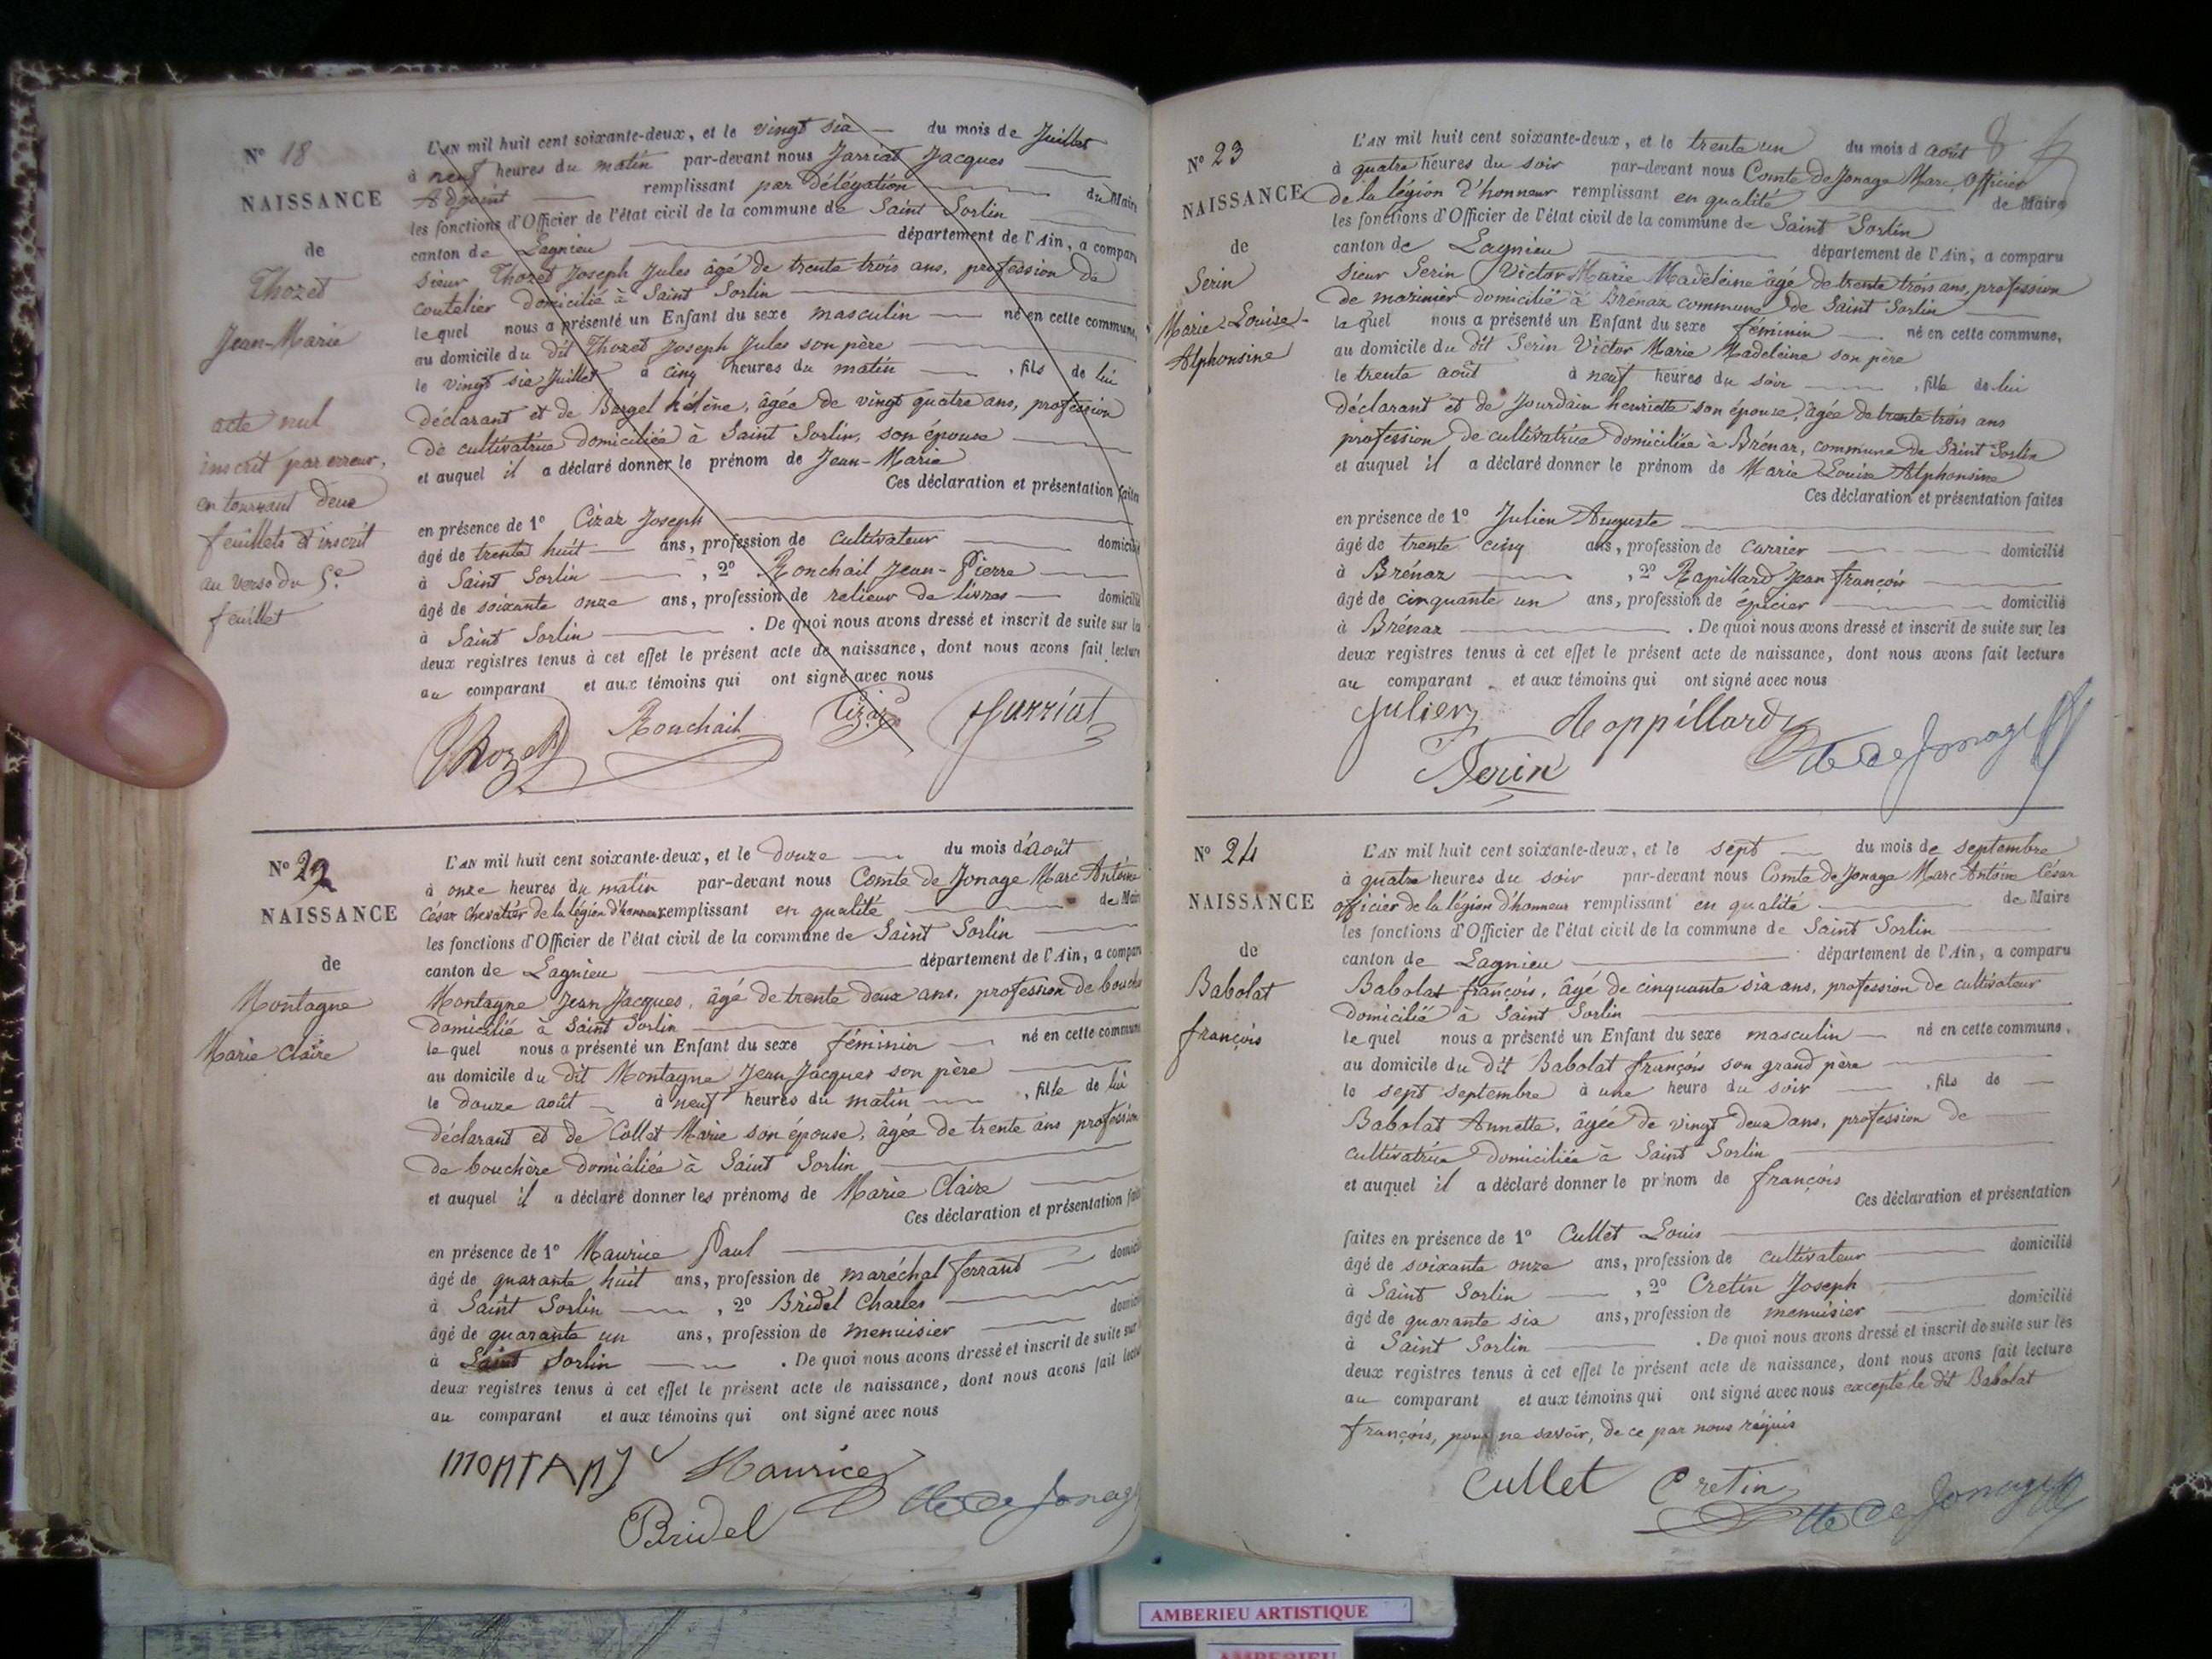 N° 18
NAISSANCE
de
Thozet
Jean-Marie
acte nul
inscrit par erreur,
en tournant deux
feuillets et inscrit
au verso du 5e
feuillet
L'AN mil huit cent soixante-deux, et le vingt six du mois de Juillet
à neuf heures du matin par-devant nous Jarriat Jacques
Adjoint remplissant par délégation du Maire
les fonctions d'Officier de l'état civil de la commune de Saint Sorlin
canton de Lagnieu département de l'Ain, a comparu
sieur Thozet Joseph Jules âgé de trente trois ans, profession de
coutelier domicilié à Saint Sorlin
lequel nous a présenté un Enfant du sexe masculin né en cette commune,
au domicile du dit Thozet Joseph Jules son père
le vingt six Juillet à cinq heures du matin , fils de lui
déclarant et de Bargel hélène, âgée de vingt quatre ans, profession
de cultivatrice domiciliée à Saint Sorlin, son épouse
et auquel il a déclaré donner le prénom de Jean-Marie
Ces déclaration et présentation faites
en présence de 1° Cizaz Joseph
âgé de trente huit ans, profession de cultivateur domicilié
à Saint Sorlin , 2° Ronchail Jean-Pierre
âgé de soixante onze ans, profession de relieur de livres domicilié
à Saint Sorlin . De quoi nous avons dressé et inscrit de suite sur la
deux registres tenus à cet effet le présent acte de naissance, dont nous avons fait lecture
au comparant et aux témoins qui ont signé avec nous
Thozet Ronchail Cizaz Jarriat
N° 22
NAISSANCE
de
Montagne
Marie Claire
L'AN mil huit cent soixante-deux, et le douze du mois d'août
à onze heures du matin par-devant nous Comte de Jonage Marc Antoine
César Chevalier de la légion d'honneur remplissant en qualité de Maire
les fonctions d'Officier de l'état civil de la commune de Saint Sorlin
canton de Lagnieu département de l'Ain, a comparu
Montagne Jean Jacques, âgé de trente deux ans, profession de boucher
domicilié à Saint Sorlin
lequel nous a présenté un Enfant du sexe féminin né en cette commune
au domicile du dit Montagne Jean Jacques son père
le douze août à neuf heures du matin , fille de lui
déclarant et de Collet Marie son épouse, âgée de trente ans profession
de bouchère domiciliée à Saint Sorlin
et auquel il a déclaré donner les prénoms de Marie Claire
Ces déclaration et présentation faites
en présence de 1° Maurice Paul
âgé de quarante huit ans, profession de maréchal ferrant domicilié
à Saint Sorlin , 2° Bridel Charles
âgé de quarante un ans, profession de menuisier domicilié
à Saint Sorlin . De quoi nous avons dressé et inscrit de suite sur
deux registres tenus à cet effet le présent acte de naissance, dont nous avons fait lecture
au comparant et aux témoins qui ont signé avec nous
Maurice
Bridel Cte de Jonage
N° 23
NAISSANCE
de
Serin
Marie-Louise-
Alphonsine
L'AN mil huit cent soixante-deux, et le trente un du mois d août 8
à quatre heures du soir par-devant nous Comte de Jonage Marc, Officier
de la légion d'honneur remplissant en qualité de Maire
les fonctions d'Officier de l'état civil de la commune de Saint Sorlin
canton de Lagnieu département de l'Ain, a comparu
sieur Serin Victor Marie Madeleine âgé de trente trois ans, profession
de marinier domicilié à Brénaz commune de Saint Sorlin
lequel nous a présenté un Enfant du sexe féminin né en cette commune,
au domicile du dit Serin Victor Marie Madeleine son père
le trente août à neuf heures du soir , fille de lui
déclarant et de Jourdain henriette son épouse, âgée de trente trois ans
profession de cultivatrice domiciliée à Brénaz, commune de Saint Sorlin
et auquel il a déclaré donner le prénom de Marie Louise Alphonsine
Ces déclaration et présentation faites
en présence de 1° Julien Auguste
âgé de trente cinq ans, profession de carrier domicilié
à Brénaz , 2° Rapillard Jean françois
âgé de cinquante un ans, profession de épicier domicilié
à Brénaz . De quoi nous avons dressé et inscrit de suite sur les
deux registres tenus à cet effet le présent acte de naissance, dont nous avons fait lecture
au comparant et aux témoins qui ont signé avec nous
Julien Cte de Jonage
Serin
N° 24
NAISSANCE
de
Babolat
françois
L'AN mil huit cent soixante-deux, et le sept du mois de septembre
à quatre heures du soir par-devant nous Comte de Jonage Marc Antoine César
officier de la légion d'honneur remplissant en qualité de Maire
les fonctions d'Officier de l'état civil de la commune de Saint Sorlin
canton de Lagnieu département de l'Ain, a comparu
Babolat françois, âgé de cinquante six ans, profession de cultivateur
domicilié à Saint Sorlin
lequel nous a présenté un Enfant du sexe masculin né en cette commune,
au domicile du dit Babolat françois son grand père
le sept septembre à une heure du soir , fils de
Babolat Annette, âgée de vingt deux ans, profession de
cultivatrice domiciliée à Saint Sorlin
et auquel il a déclaré donner le prénom de françois
Ces déclaration et présentation
faites en présence de 1° Cullet Louis
âgé de soixante onze ans, profession de cultivateur domicilié
à Saint Sorlin , 2° Cretin Joseph
âgé de quarante six ans, profession de menuisier domicilié
à Saint Sorlin . De quoi nous avons dressé et inscrit de suite sur les
deux registres tenus à cet effet le présent acte de naissance, dont nous avons fait lecture
au comparant et aux témoins qui ont signé avec nous excepté le dit Babolat
françois, pour ne savoir, de ce par nous réquis
Cullet Cretin Cte de Jonage
AMBERIEU ARTISTIQUE
AMBERIEU